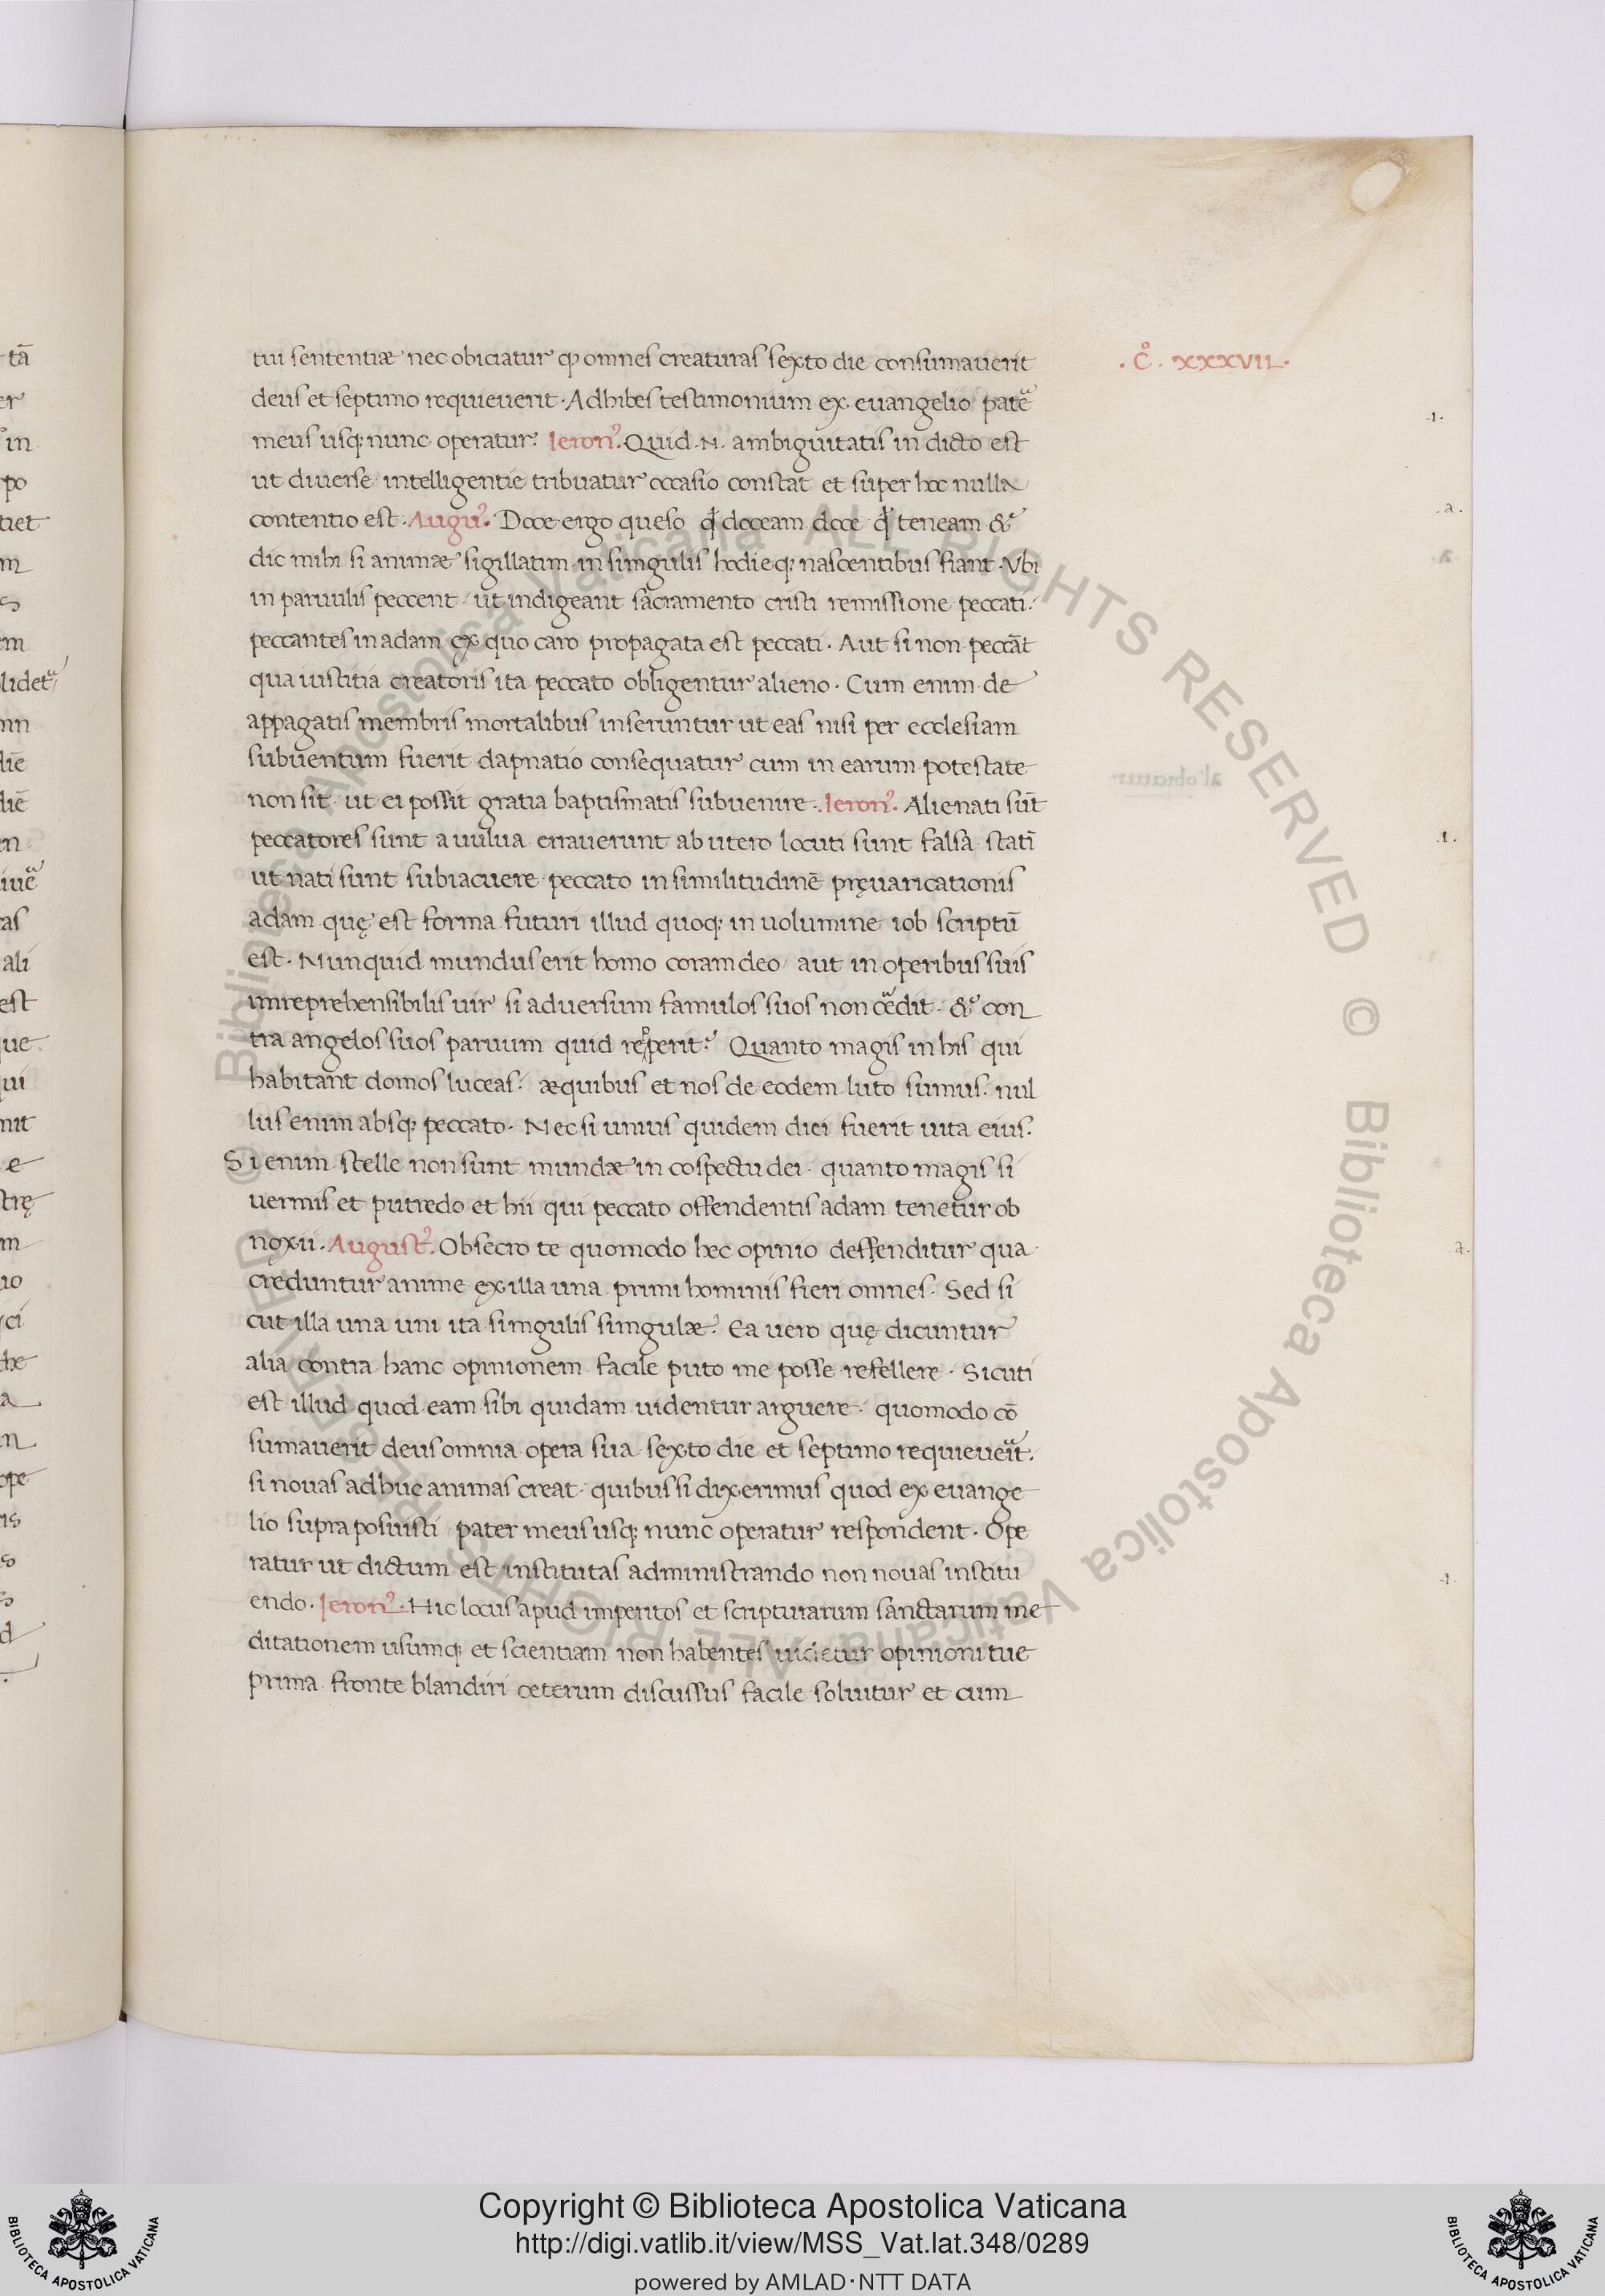 tui sententiæ nec obiciatur ꝙ omnes creaturas sexto die consumauerit
deus et septimo requieuerit · Adhibes testimonium ex euangelio pat̃e
meus usq; nunc operatur. Ieron⁹. Quid .N. ambiguitatis in dicto est
ut diuerse intelligentie tribuatur occasio constat et super hoc nulla
contentio est. Augu⁹. Doce ergo queso qđ doceam doce qđ teneam &
dic mihi si animæ sigillatim in simgulis hodieq; nascentibus fiant. Vbi
in paruulis peccent ut indigeant sacramento cristi remissione peccati.
peccantes in adam ex quo caro propagata est peccati. Aut si non peccāt
qua iustitia creatoris ita peccato obligentur alieno. Cum enim de
appagatis membris mortalibus inseruntur ut eas nisi per ecclesiam
subuentum fuerit dapnatio consequatur cum in earum potestate
non sit ut ei possit gratia baptismatis subuenire. Ieron⁹. Alienati sūt
peccatores sunt a uulua errauerunt ab utero locuti sunt falsa statī
ut nati sunt subiacuere peccato in similitudinē pręuaricationis
adam quę est forma futuri illud quoq; in uolumine iob scriptū
est. Nunquid mundus erit homo coram deo aut in operibus suis
inreprehensibilis uir si aduersum famulos suos non c̃edit. & con
tra angelos suos paruum quid repperit? Quanto magis in his qui
habitant domos luceas. æquibus et nos de eodem luto sumus. nul
lus enim absq; peccato. Nec si unius quidem diei fuerit uita eius.
Si enim stelle non sunt mundæ in cospectu dei quanto magis si
uermis et putredo et hii qui peccato offendentis adam tenetur ob
noxii. August⁹. Obsecro te quomodo hec opinio deffenditur qua
creduntur anime ex illa una primi hominis fieri omnes. Sed si
cut illa una uni ita simgulis simgulæ. Ea uero quę dicuntur
alia contra hanc opinionem facile puto me posse refellere. Sicuti
est illud quod eam sibi quidam uidentur arguere quomodo cō
sumauerit deus omnia opera sua sexto die et septimo requieue᷑it.
si nouas adhuc animas creat quibus si dixerimus quod ex euange
lio supra posuisti pater meus usq; nunc operatur respondent. Ope
ratur ut dictum est institutas administrando non nouas institu
endo. Ieron⁹. Hic locus apud imperitos et scripturarum sanctarum me
ditationem usumq; et scientiam non habentes uidetur opinioni tue
prima fronte blandiri ceterum discussus facile soluitur et cum
. C̊ . XXXVII.
.i.
.a.
.a.
.i.
.a.
.i.
© Biblioteca Apostolica Vaticana ALL RIGHTS RESERVED © Biblioteca Apostolica Vaticana ALL RIGHTS RESERVED
Copyright © Biblioteca Apostolica Vaticana
http://digi.vatlib.it/view/MSS_Vat.lat.348/0289
powered by AMLAD·NTT DATA
BIBLIOTECA APOSTOLICA VATICANA
BIBLIOTECA APOSTOLICA VATICANA